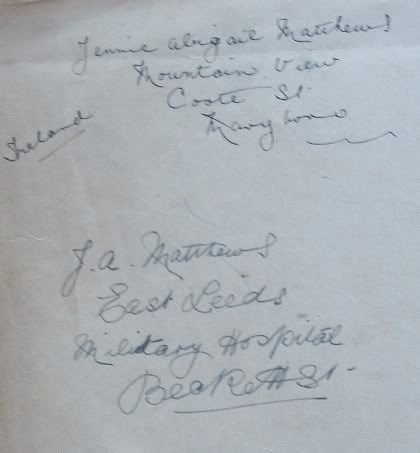 Jennie Abigail Matthews
Mountain View
Coote St.
Maryboro
Ireland
J. A. Matthews
East Leeds
Military Hospital
Beckett St.